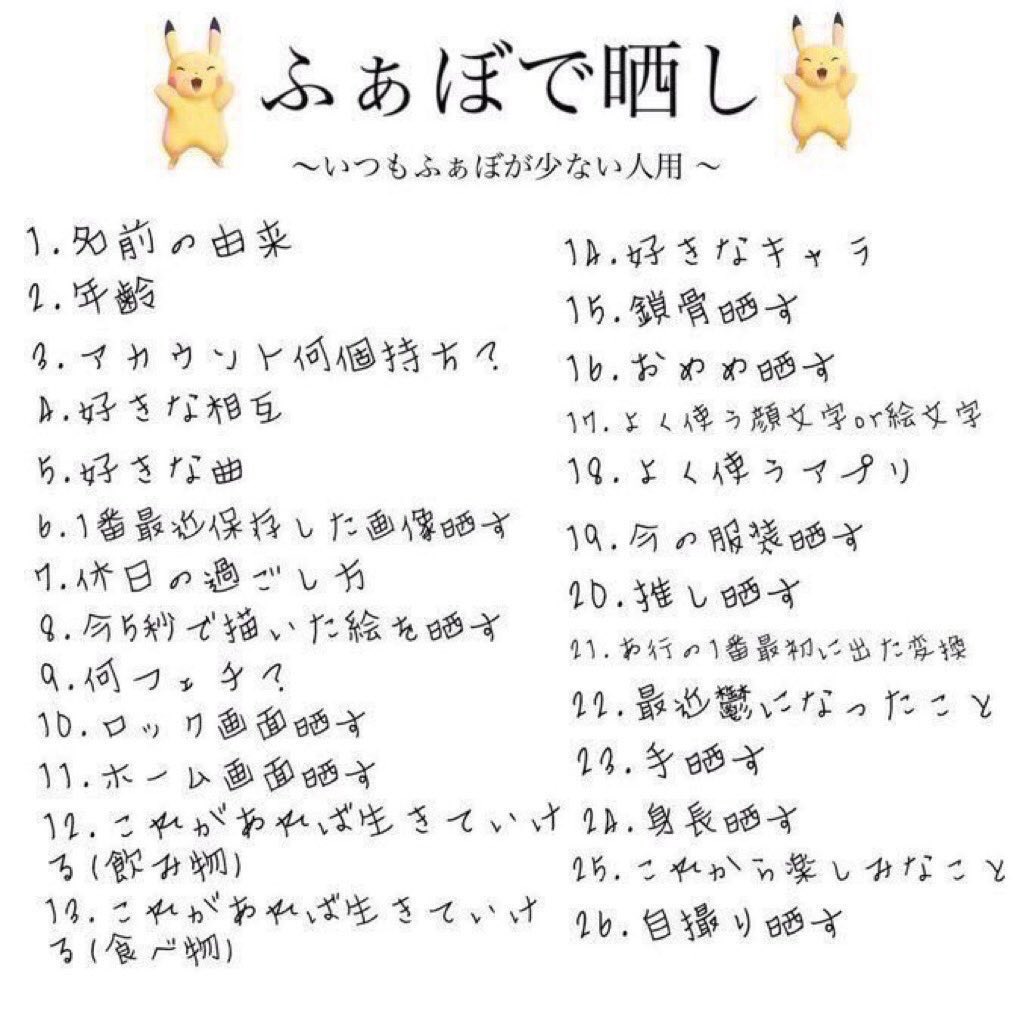 ふぁぼで晒し
～いつもふぁぼが少ない人用 ～
1.名前の由来
2.年齢
3.アカウント何個持ち?
4.好きな相互
5.好きな曲
6.1番最近保存した画像晒す
7.休日の過ごし方
8.今5秒で描いた絵を晒す
9.何フェチ?
10.ロック画面晒す
11.ホーム画面晒す
12.これがあれば生きていけ
る(飲み物)
13.これがあれば生きていけ
る(食べ物)
14.好きなキャラ
15.鎖骨晒す
16.おめめ晒す
17.よく使う顔文字or絵文字
18.よく使うアプリ
19.今の服装晒す
20.推し晒す
21.あ行の1番最初に出た変換
22.最近鬱になったこと
23.手晒す
24.身長晒す
25.これから楽しみなこと
26.自撮り晒す